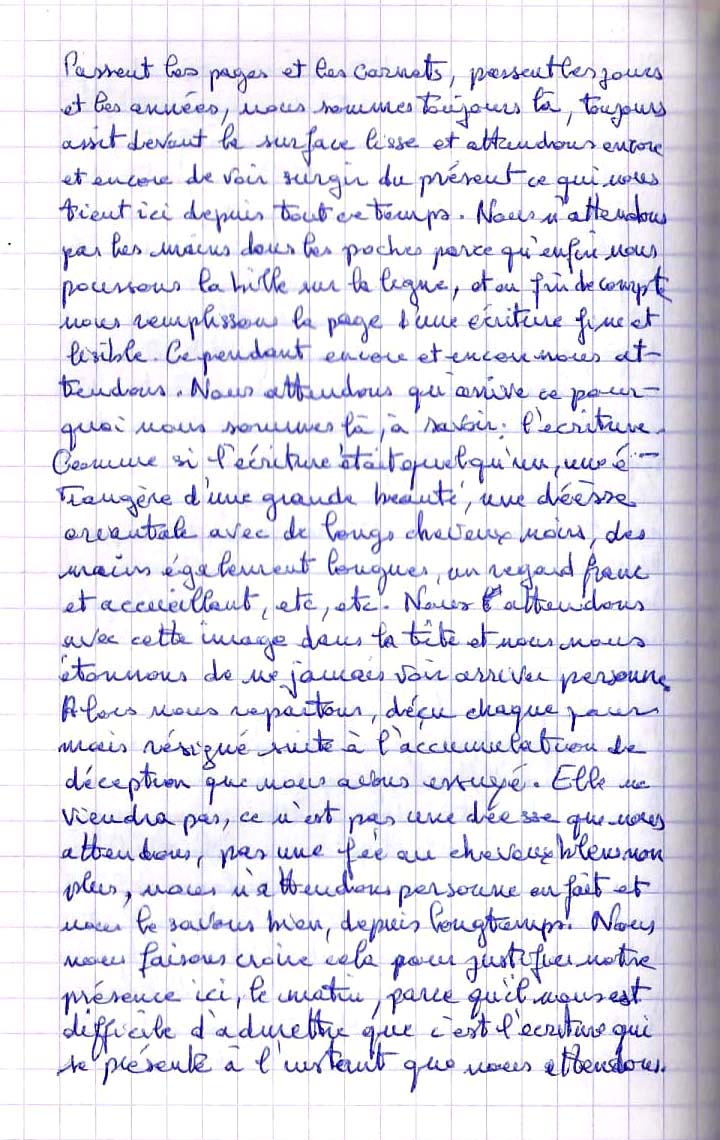 Passent les pages et les carnets, passent les jours
et les années, nous sommes toujours là, toujours
assit devant la surface lisse et attendons encore
et encore de voir surgir du présent ce qui nous
tient ici depuis tout ce temps. Nous n'attendons
pas les mains dans les poches parce qu'enfin nous
poussons la bille sur la ligne, et en fin de compte
nous remplissons la page d'une écriture fine et
lisible. Cependant encore et encore nous at-
tendons. Nous attendons qu'arrive ce pour-
quoi nous sommes là, à savoir : l'ecriture.
Comme si l'écriture était quelqu'un, une é-
trangère d'une grande beauté, une déesse
orientale avec de longs cheveux noirs, des
mains également longues, un regard franc
et accueillant, etc, etc. Nous l'attendons
avec cette image dans la tête et nous nous
étonnons de ne jamais voir arriver personne.
Alors nous repartons, déçu chaque jour
mais résigné suite à l'accumulation de
déception que nous avons essuyé. Elle ne
viendra pas, ce n'est pas une déesse que nous
attendons, pas une fée au cheveux bleus non
plus, nous n'attendons personne en fait et
nous le savons bien, depuis longtemps. Nous
nous faisons croire cela pour justifier notre
présence ici, le matin, parce qu'il nous est
difficile d'admettre que c'est l'ecriture qui
se présente à l'instant que nous attendons.